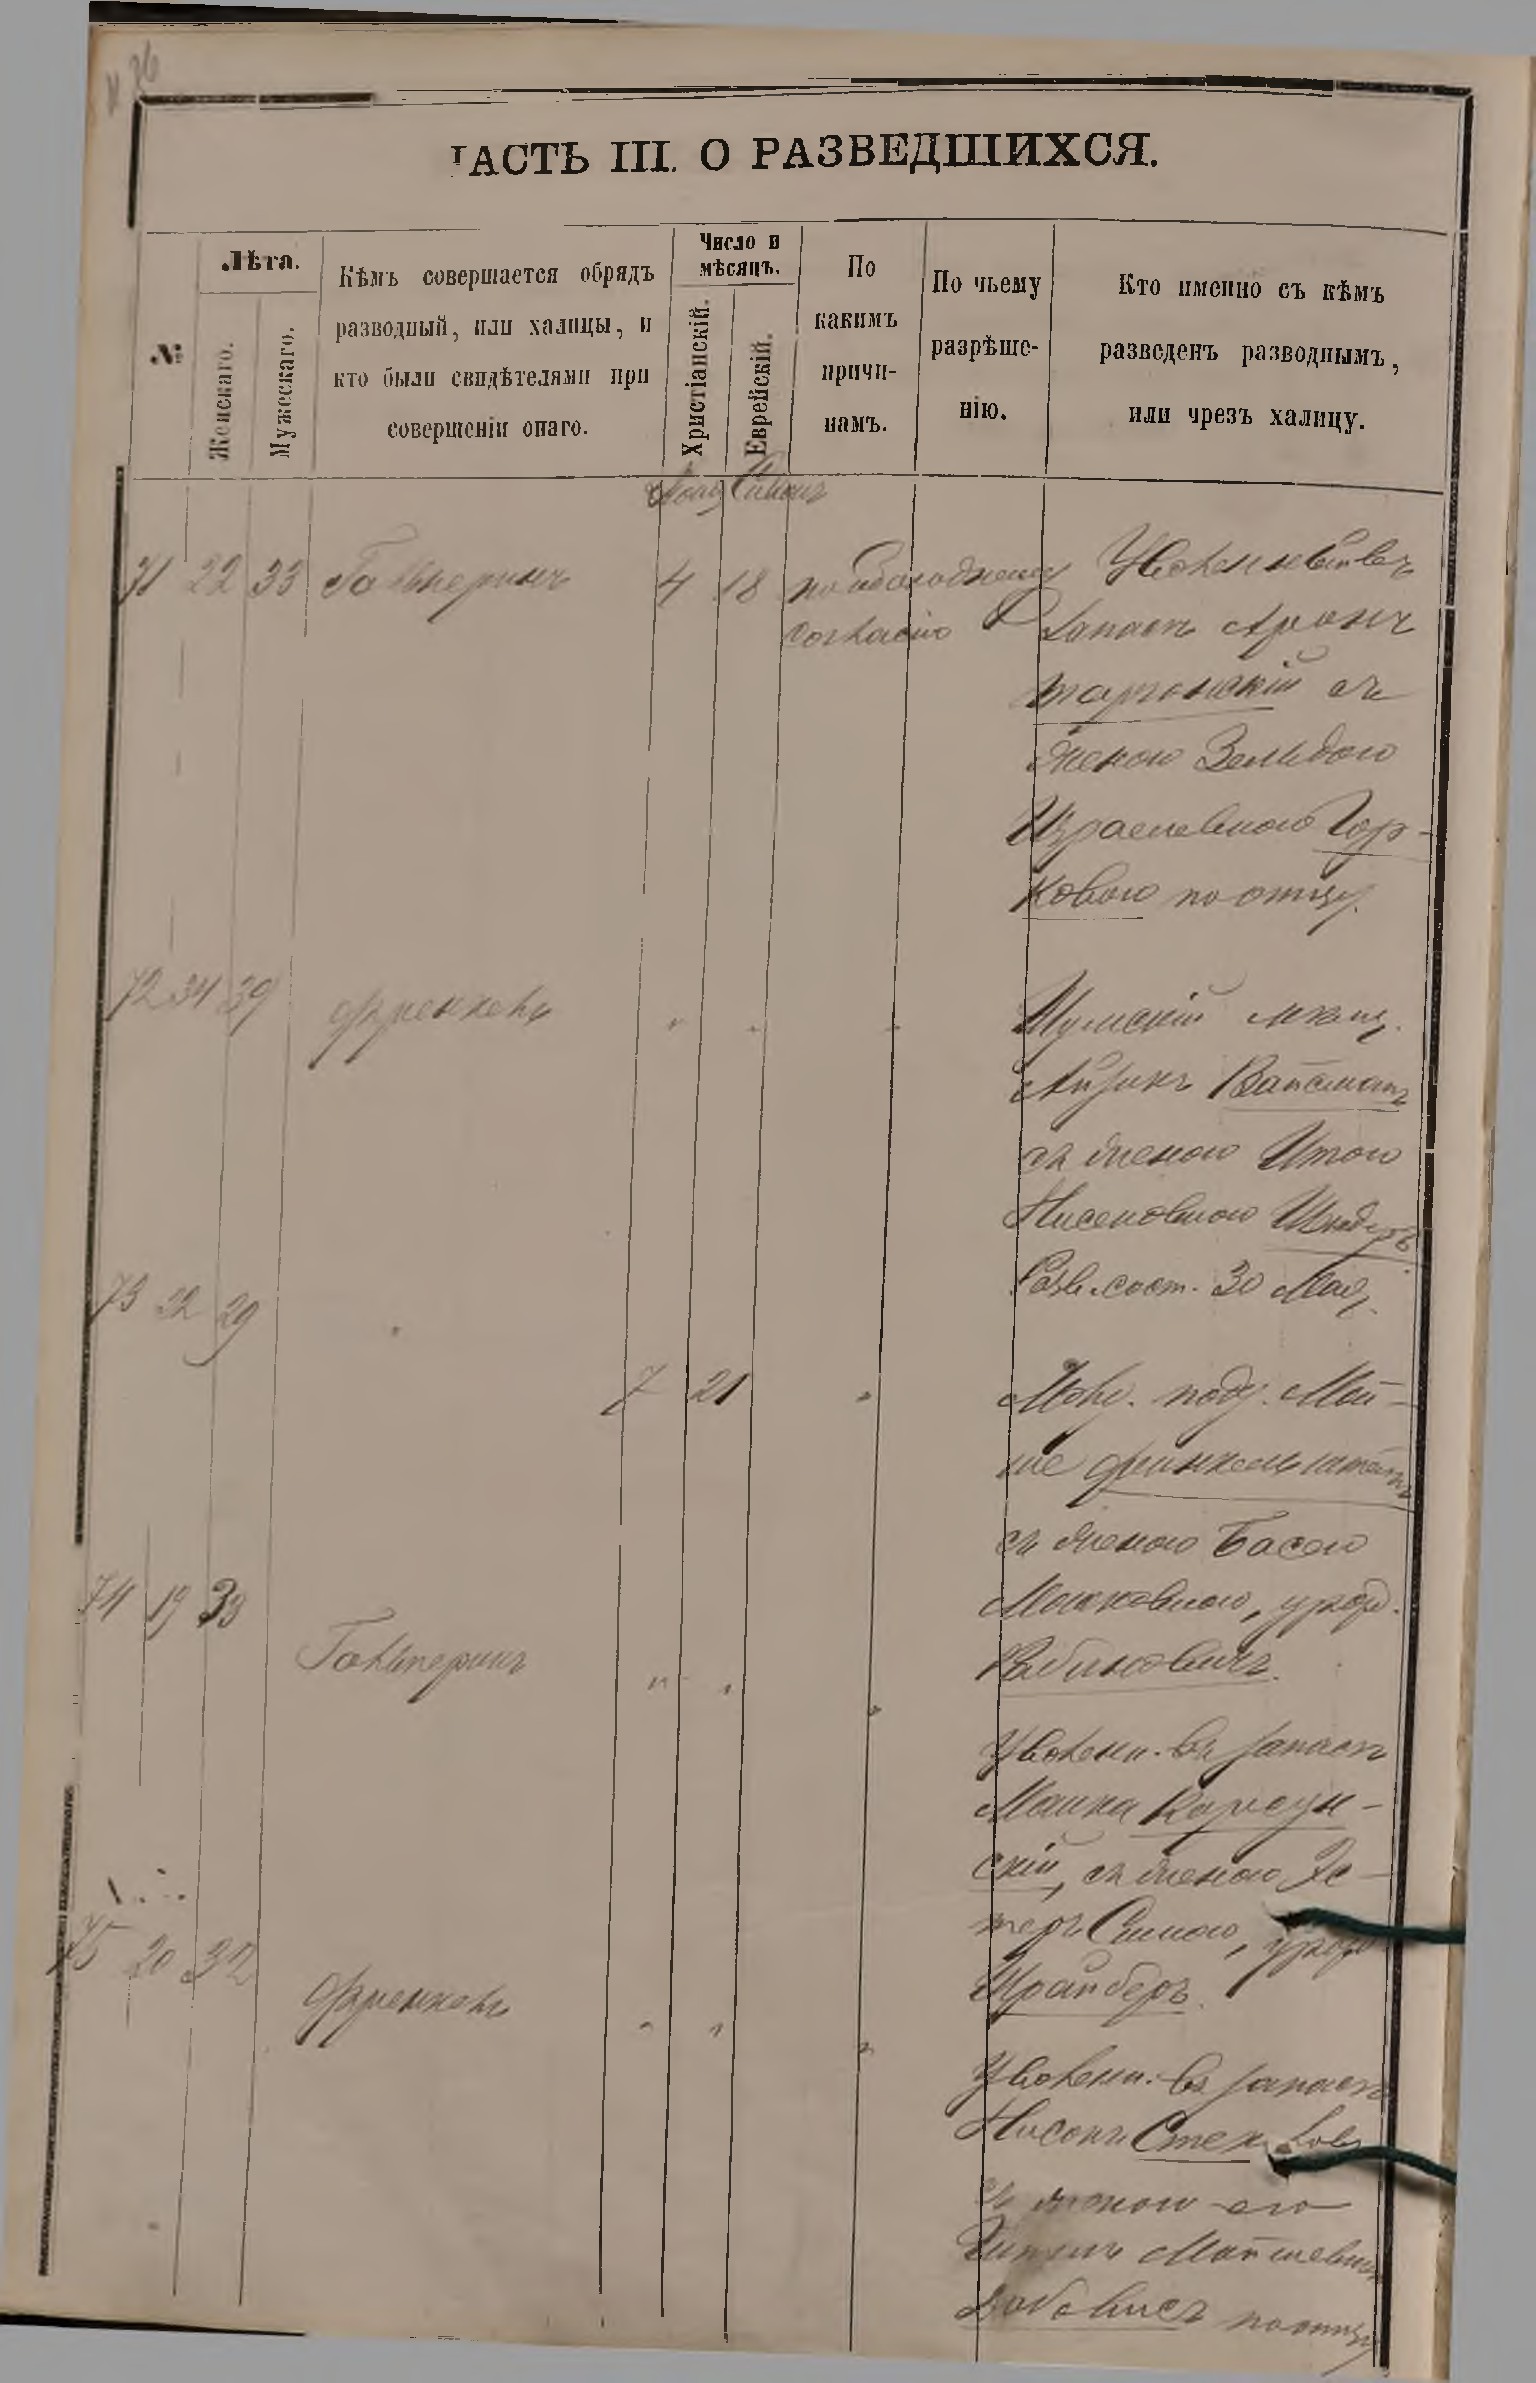 26
ЧАСТЬ III. О РАЗВЕДШИХСЯ.
№
Лѣта.
Женскаго.
Мужескаго.
Кѣмъ совершается обрядъ
разводный, или халицы, и
кто были свидѣтелями при
совершеніи онаго.
Число и
мѣсяцъ.
Христіанскій.
Еврейскій.
По
какимъ
причи-
намъ.
По чьему
разрѣше-
нію.
Кто именно съ кѣмъ
разведенъ разводнымъ,
или чрезъ халицу.
Сиванъ
71 22 33 Гальперинъ 4 18 по обоюдному
согласію
запасъ Аронъ
съ
женою Зельдою
Израилевною Гор-
ковою по отцу.
72 34 39 Френкель " " "
Шумскій мѣщ.
Айзикъ Вайсманъ
съ женою Итою
Нисеновною
Разв. сост. 30 Мая.
73 22 29 " 7 21 "
Мой-
ше Финкельштейнъ
съ женою Басею
Мошковною, урож.
Рабиновичъ.
74 19 33 Гальперинъ " " "
Уволен. въ запасъ
Машка Корсун-
скій, съ женою Эс-
теръ Симою, урож
Шрайберъ.
75 20 32 Френкель " " "
Уволен. въ запасъ
Нисонъ
съ женою его
по отцу